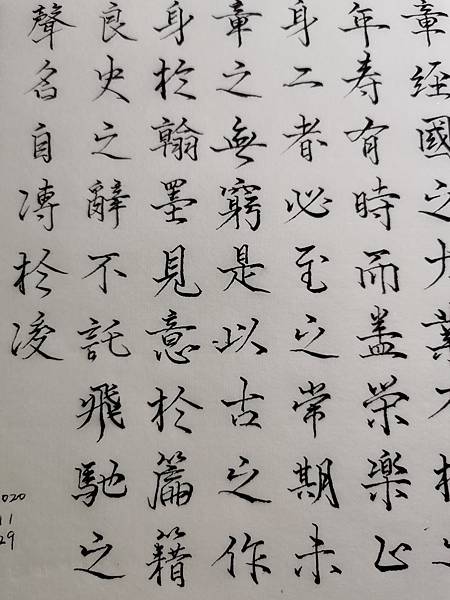 章經國之大業不朽之
年壽有時而盡榮樂止
身二者必至之常期未
章之無窮是以古之作
身於翰墨見意於篇籍
良史之辭不託飛馳之
聲名自傳於後
2020
11
29